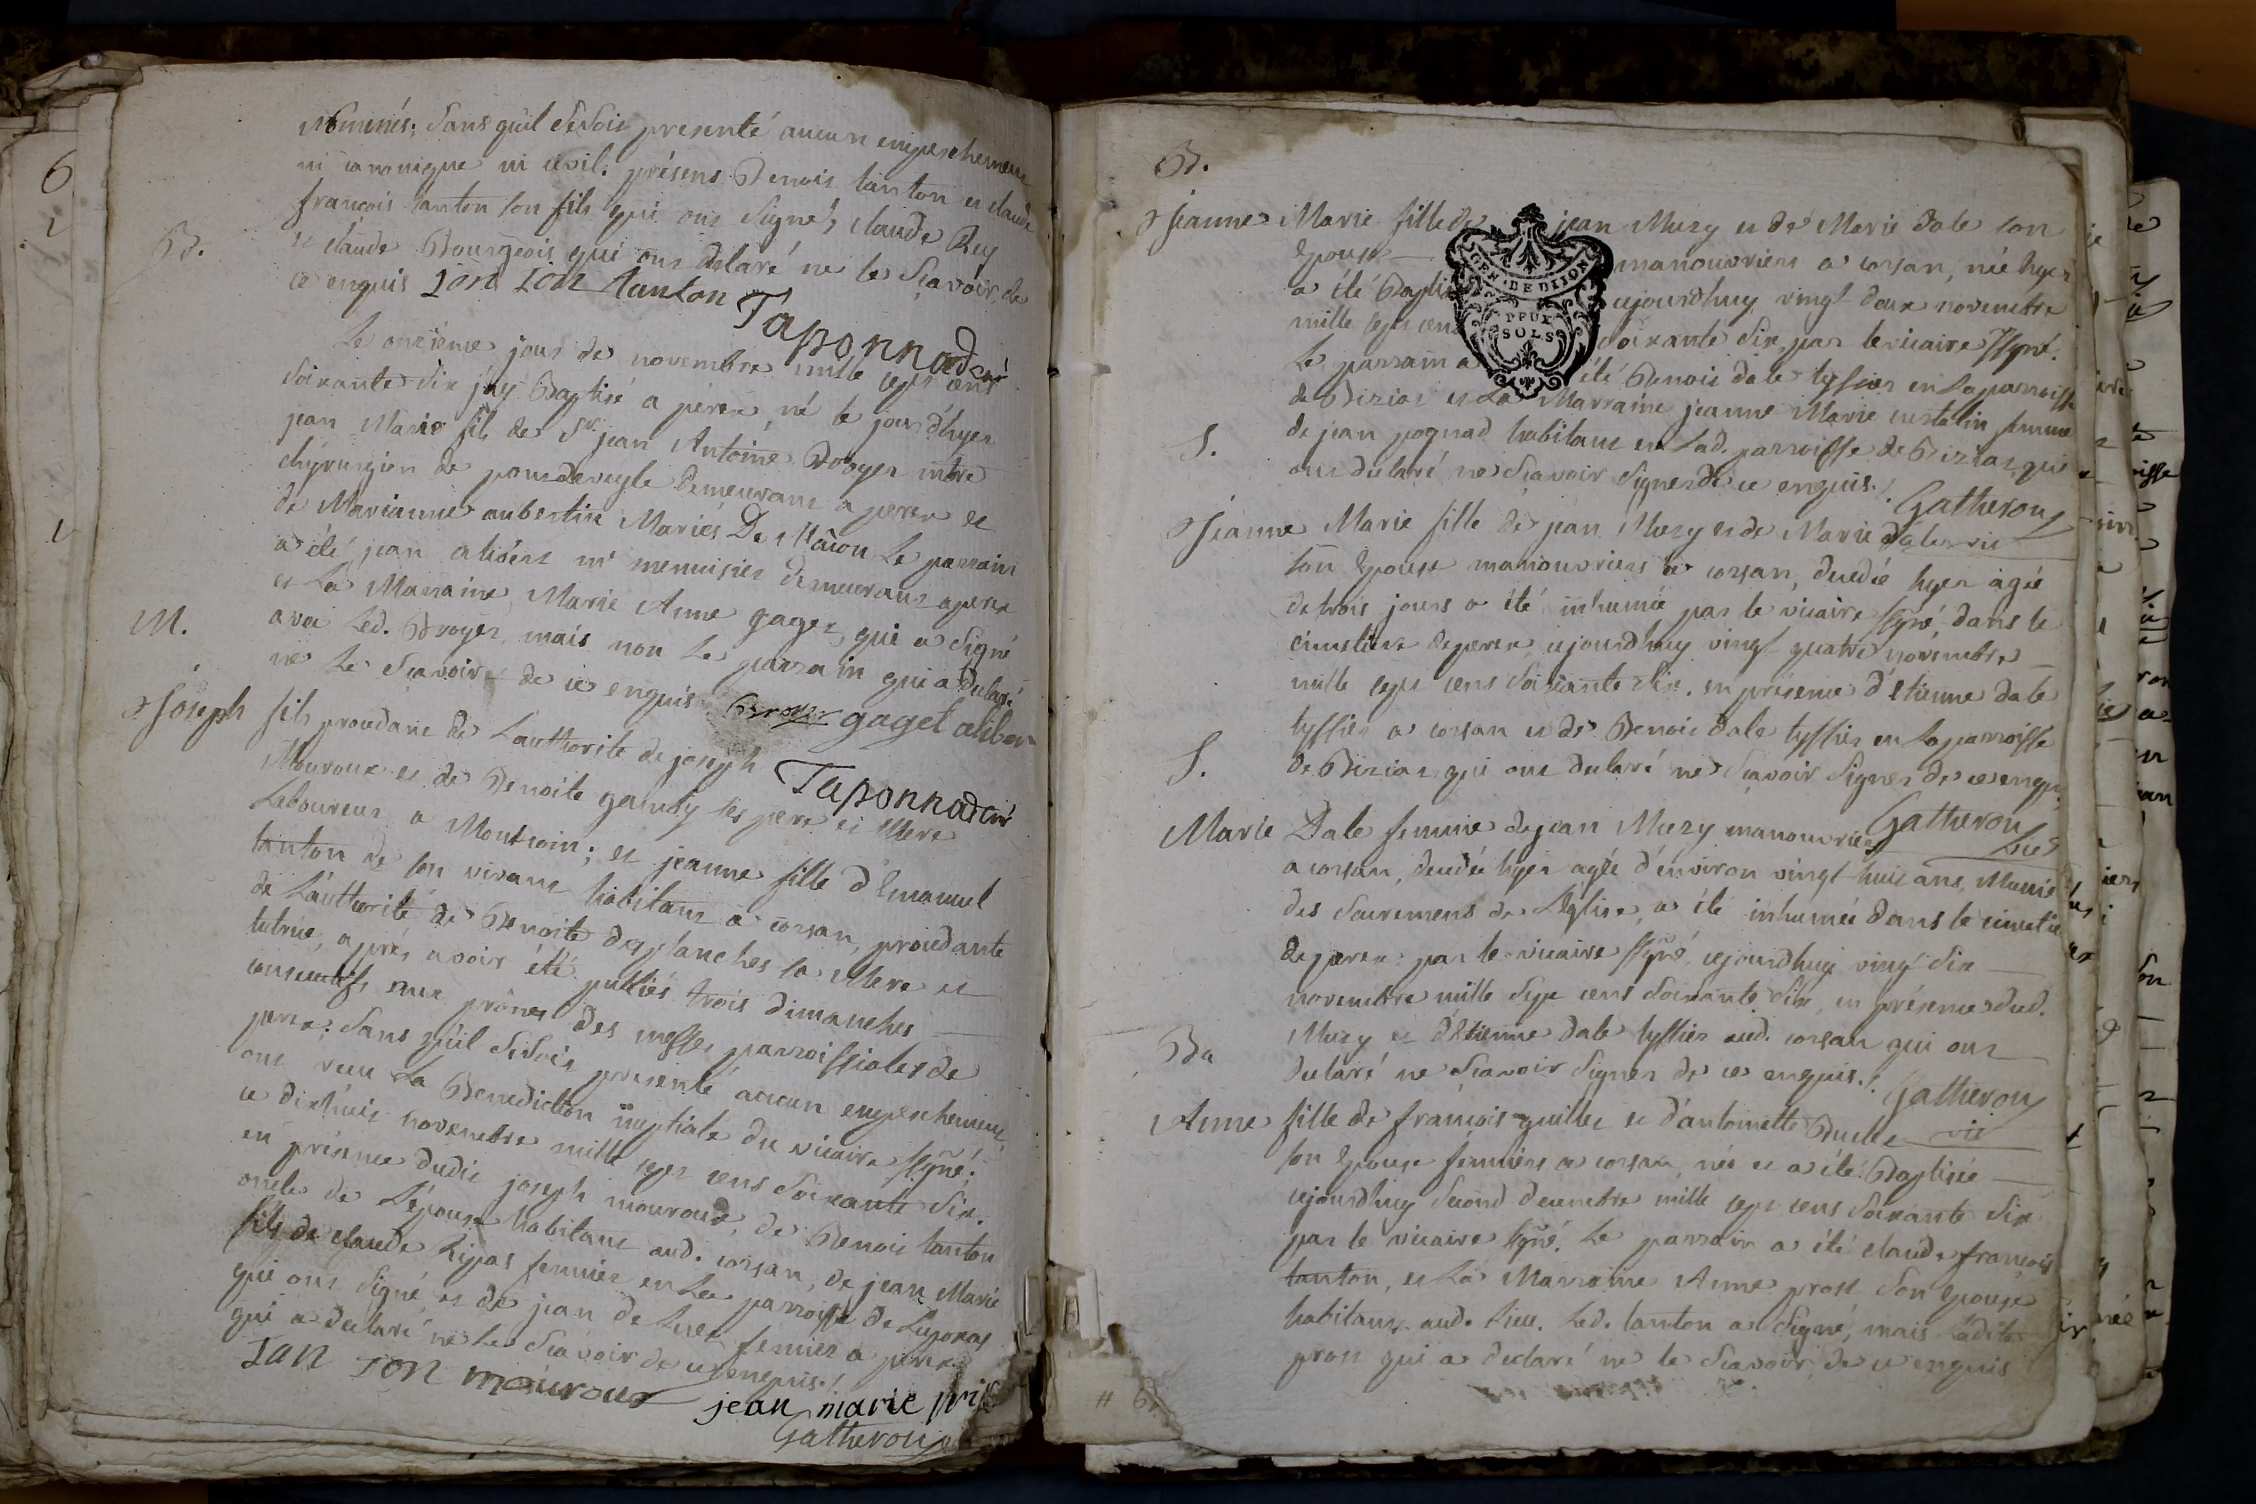 6
nommés; sans quil se soit presenté aucun empeschement
ni canonique ni civil. présens Benoit tanton et claude
françois tanton son fils qui ont signés, claude Rey
B.
et claude Bourgeois qui ont declaré ne le sçavoir, de
ce enquis Tanton
Taponnad curé
Le onzieme jour de novembre mille sept cent
soixante six jay Baptisé a perex, né le jour d'hyer
jean Marie fils de Sr jean Antoine Broyer mtre
chyrurgien de pondeveyle demeurant a perex et
de Marianne aubertin Mariés De Macon Le parrain
a été jean mr menuisier demeurant a perex
et La Marraine Marie Anne gaget, qui a signé
M.
avec Led. Broyer, mais non Le parrain qui a declaré
ne Le sçavoir de ce enquis Broyer gaget
Joseph fils procedant de Lauthorité de joseph
Taponnad curé
Mouroux et de Benoite gandy ses pere et Mere
Laboureur a Montcoin; et jeanne fille d'Emanuel
tanton de son vivant habitant a corsan, procedante
de Lauthorité de Benoite desplanches sa Mere et
tutrice, aprés avoir été publiés trois dimanches
consecutifs aux prônes des messes parroissiales de
perex: sans qu'il se soit presenté aucun empeschement,
ont reçu La Benediction nuptiale du vicaire ssgné;
ce dixhuit novembre mille sept cens soixante six.
en présence dudit joseph mouroux, de Benoit tanton
oncle de L'épouse habitant aud. corsan, de jean Marie
fils de claude fermier en La parroisse de
qui ont signé et de jean de Luer fermier a perex
qui a declaré ne Le sçavoir de ce enquis.
mouroux jean marie
Gatheron
B.
GEN. DE DIJON
DEUX SOLS
Jeanne Marie fille de jean Muzy et de Marie Dale son
Epouse manouvriers a corsan, née hyer
a été Baptisée cejourdhuy vingt deux novembre
mille sept cens soixante six, par le vicaire ssgné.
Le parrain a été Benoit dale tyssier en La parroisse
de Biziat et La Marraine jeanne Marie femme
S.
de jean pognad habitant en Lad. parroisse de Biziat, qui
ont declaré ne sçavoir signer de ce enquis.
Gatheron
Jeanne Marie fille de jean Muzy et de Marie dale vic
son Epouse manouvriers a corsan, decedée hyer agée
de trois jours a été inhumée par le vicaire ssgné, dans le
cimetiere de perex, cejourdhuy vingt quatre novembre
mille sept cens soixante six. en présence d'etienne dale
tyssier a corsan et de Benoit dale tyssier en La parroisse
S.
de Biziat, qui ont declaré ne sçavoir signer de ce enquis.
Gatheron
vic
Marie Dale femme de jean Muzy manouvrier
a corsan, decedée hyer agée d'environ vingt huit ans, Munie
des sacremens de L'Eglise, a été inhumée dans le cimetiere
de perex par le vicaire ssgné, cejourdhuy vingt six
novembre mille sept cens soixante six, en présence dud.
Muzy et d'Etienne dale tyssier aud. corsan qui ont
Ba
declaré ne sçavoir signer de ce enquis.
Gatheron
vic
Anne fille de françois guillet et d'antoinette
son Epouse fermiers a corsan, née et a été Baptisée
cejourdhuy second decembre mille sept cens soixante six
par le vicaire ssgné. Le parrain a été claude françois
tanton, et La Marraine Anne prost son Epouse
habitans aud. Lieu. Led. tanton a signé, mais Ladite
prost qui a declaré ne le sçavoir, de ce enquis